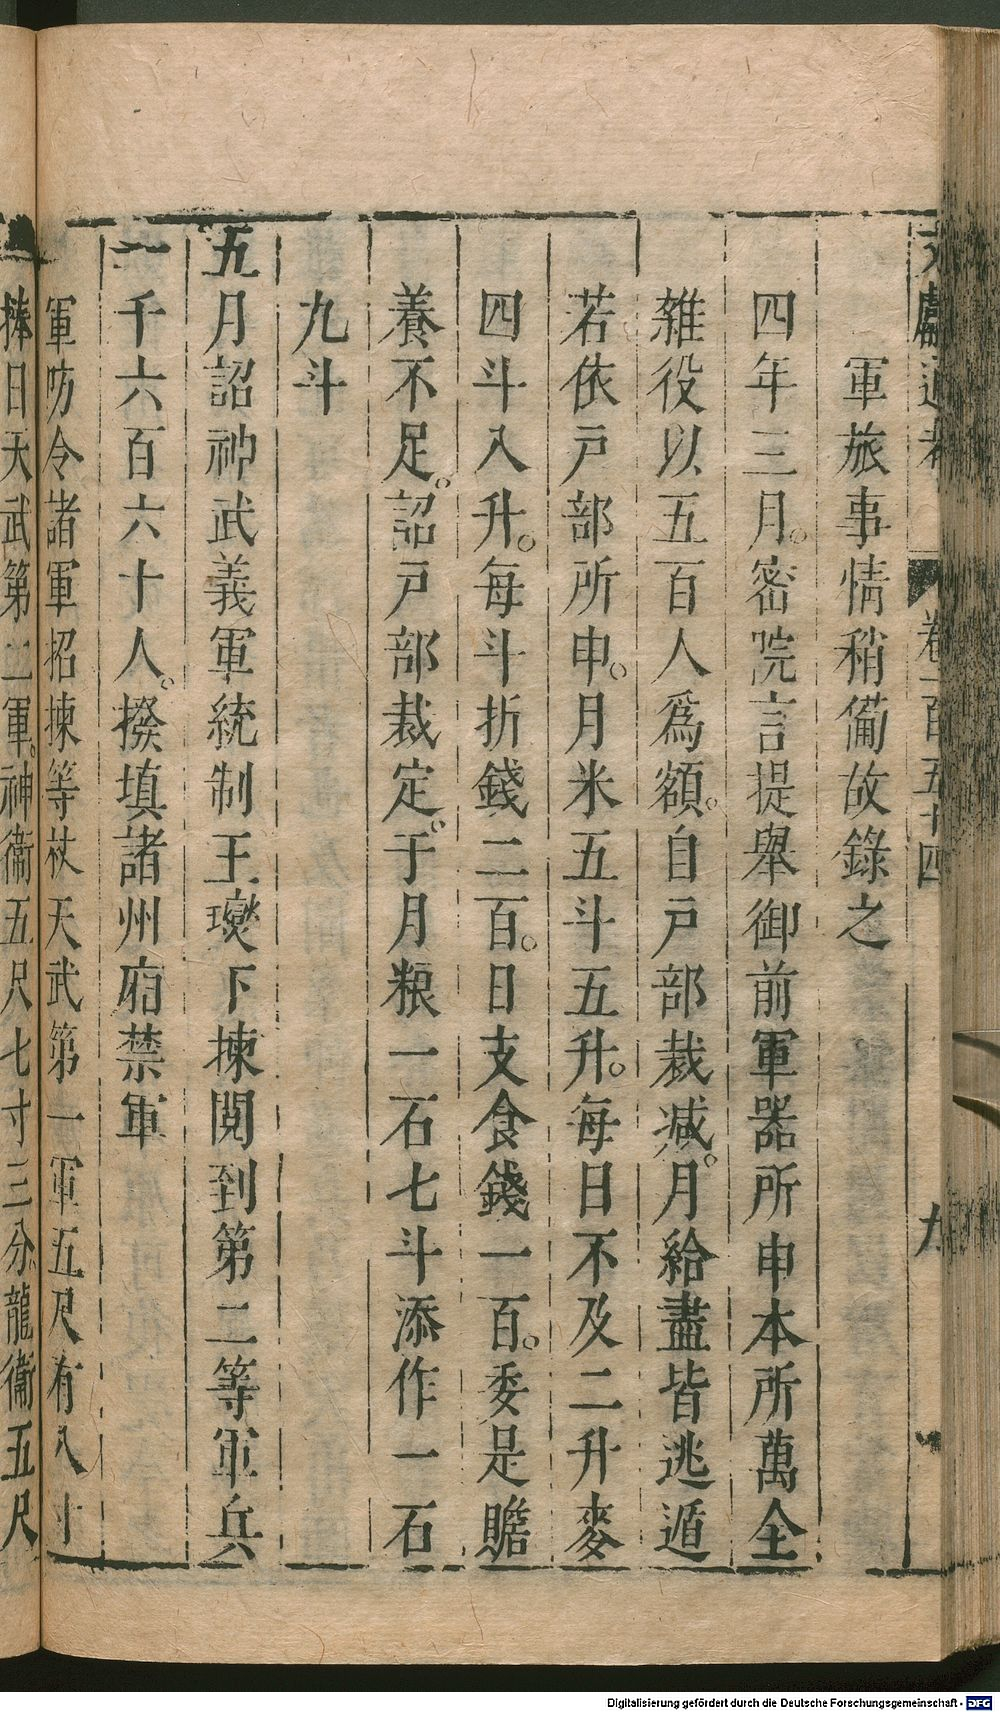 文獻通考 卷一百五十四 九
軍旅事情稍備故錄之
四年三月。密院言提舉御前軍器所申本所萬全
雜役以五百人爲額。自戸部裁减。月給盡皆逃遁
若依戸部所申。月米五斗五升。每日不及二升麥
四斗八升。每斗折錢二百。日支食錢一百。委是贍
養不足。詔戸部裁定。于月粮一石七斗添作一石
九斗
五月詔神武義軍統制王𤫉下揀閱到第二等軍兵
一千六百六十人。撥填諸州廂禁軍
軍昉令諸軍招揀等杖天武第一軍五尺有八寸
捧日天武第二軍。神衞五尺七寸三分龍衞五尺
Digitalisierung gefördert durch die Deutsche Forschungsgemeinschaft - DFG